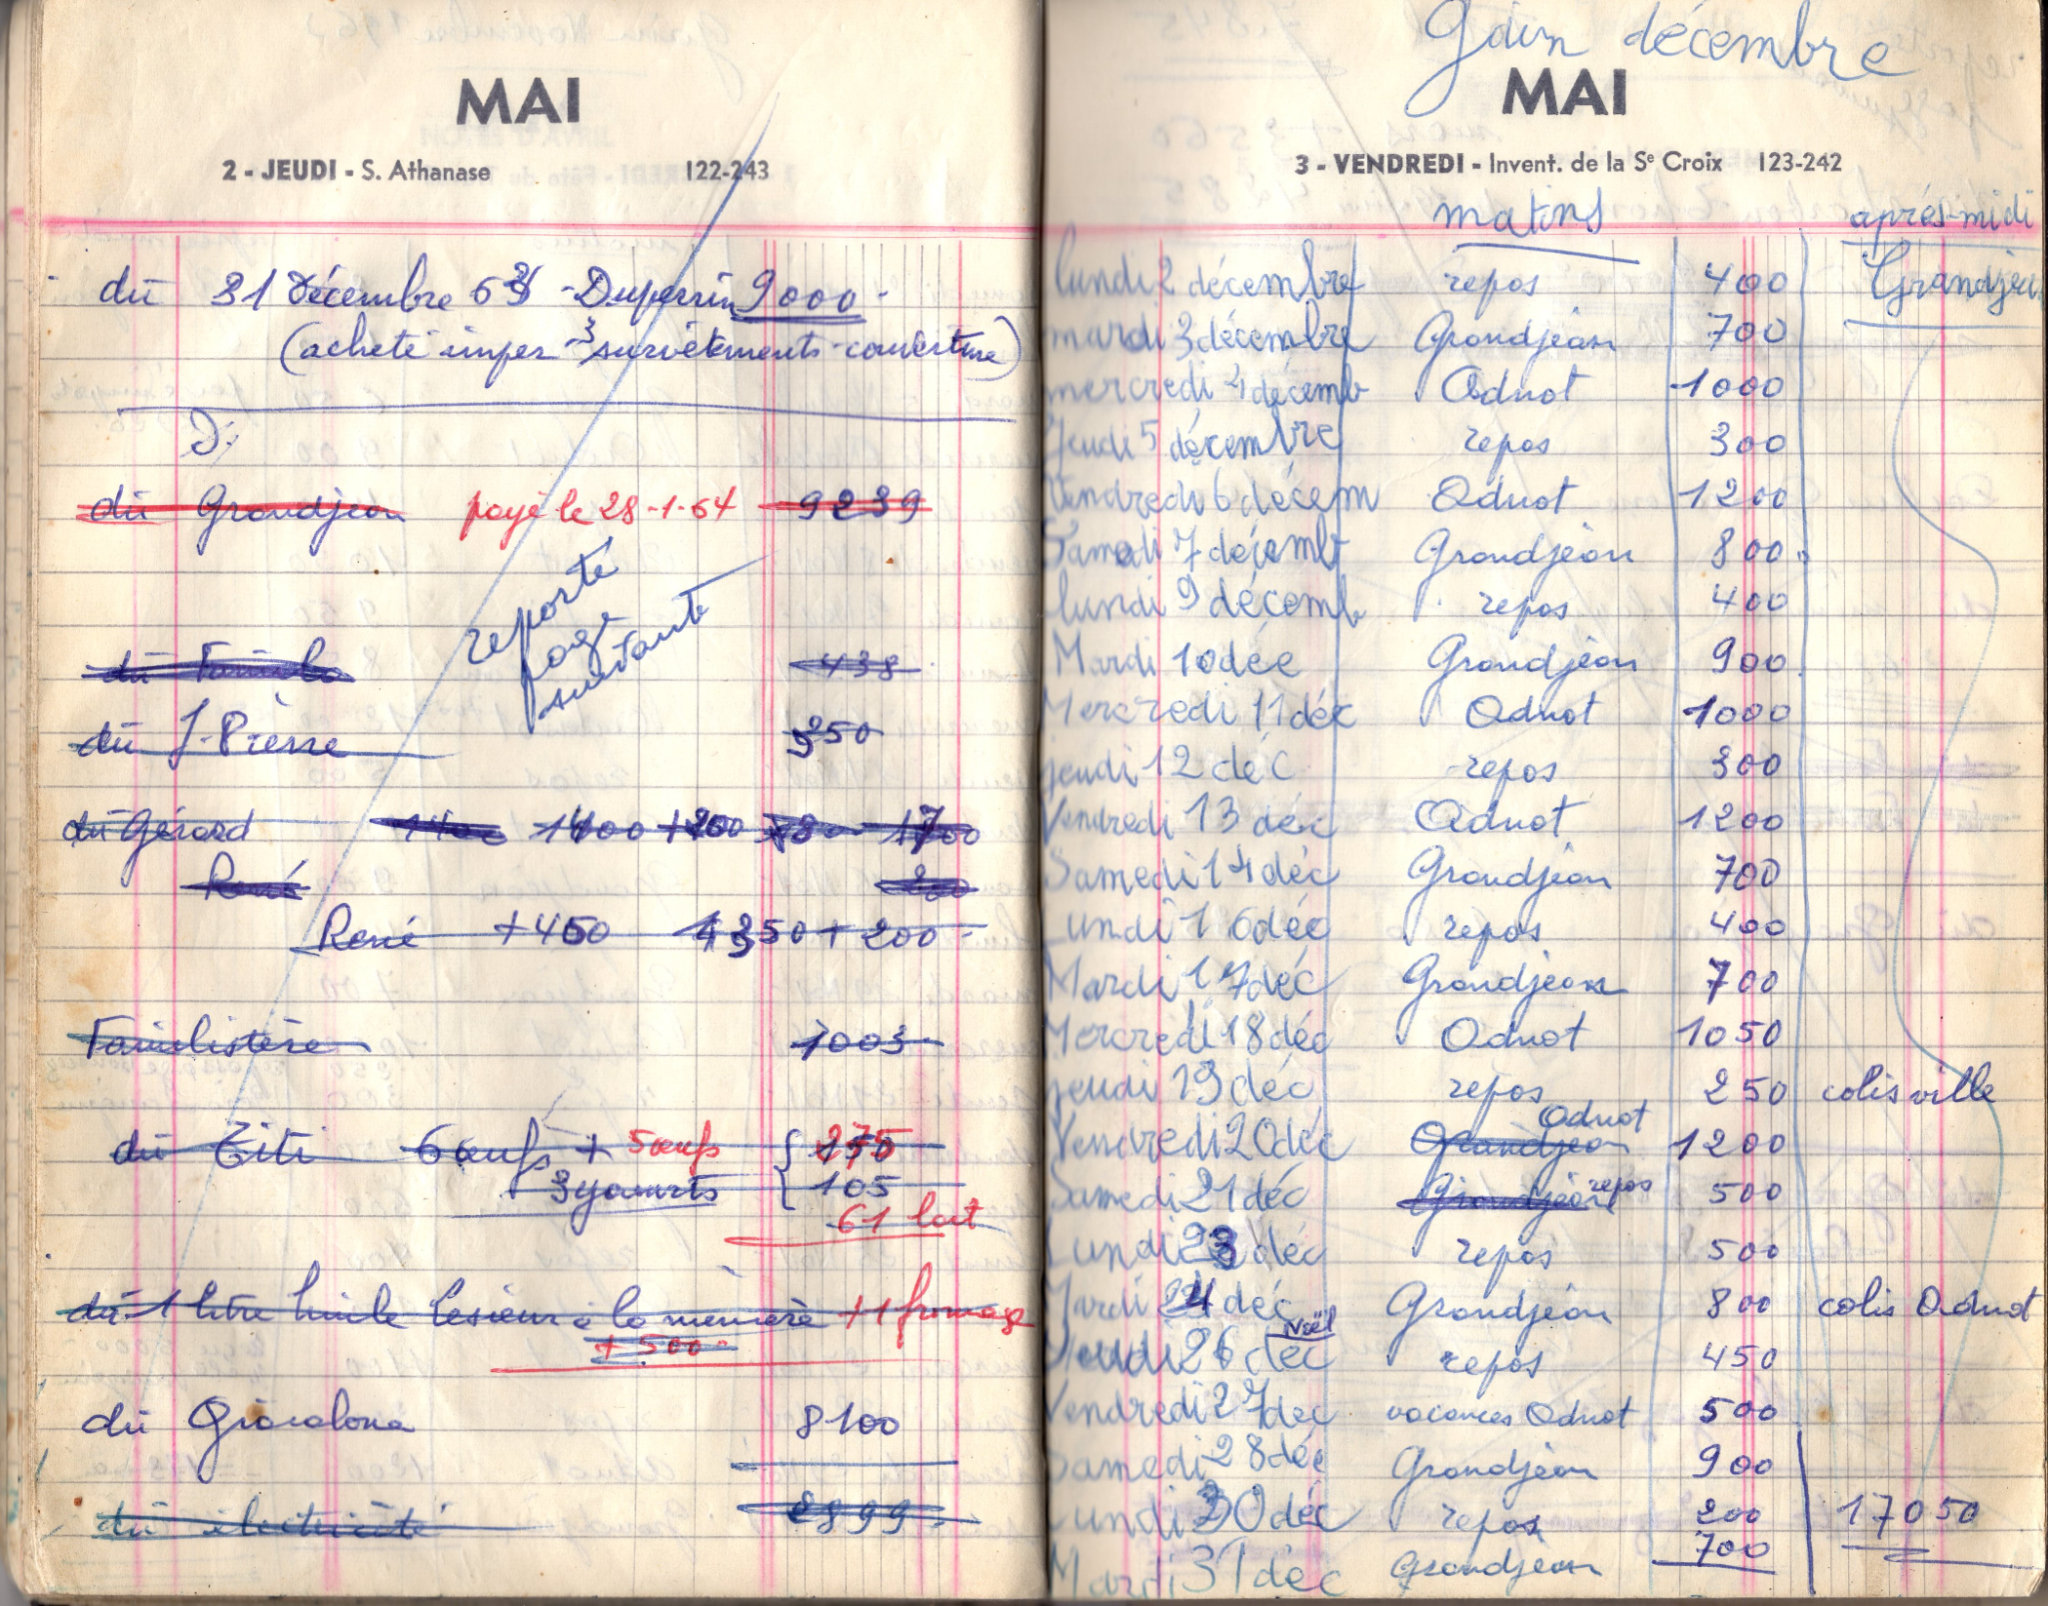 MAI
2 - JEUDI - S. Athanase 122-243
dû 31 Décembre 63 - Duperrin 9000 -
(acheté imper - 3 survêtements - couverture)
D:
dû Grandjean payé le 28-1-64 9239
reporté
page
suivante
dû Famile 438
dû J-Pierre 350
dû Gérard 1400 1400 + 200 1700
René
René +450 1350 + 200 -
Familistère 1003
dû Titi 6 œufs + 5 œufs 275
3 yaourts 105
61 lait
dû 1 litre huile Lesieur à la mémère + 1 fromage
+ 500
dû Giocolona 8100
dû électricité 2899 -
Gain décembre
MAI
3 - VENDREDI - Invent. de la Sᵉ Croix 123-242
matins après-midi
lundi 2 décembre repos 400 Grandjean
mardi 3 décembre Grandjean 700
mercredi 4 décemb Odnot 1000
Jeudi 5 décembre repos 300
Vendredi 6 décem Odnot 1200
Samedi 7 décemb Grandjean 800
lundi 9 décemb repos 400
Mardi 10 déc Grandjean 900
Mercredi 11 déc Odnot 1000
jeudi 12 déc repos 300
Vendredi 13 déc Odnot 1200
Samedi 14 déc Grandjean 700
Lundi 16 déc repos 400
Mardi 17 déc Grandjean 700
Mercredi 18 déc Odnot 1050
jeudi 19 déc repos 250 colis ville
Vendredi 20 déc Grandjean Odnot 1200
Samedi 21 déc Grandjean repos 500
Lundi 23 déc repos 500
Mardi 24 déc Grandjean 800 colis Odnot
Jeudi 26 déc Noël repos 450
Vendredi 27 déc vacances Odnot 500
Samedi 28 déc Grandjean 900
Lundi 30 déc repos 200 17050
Mardi 31 déc Grandjean 700